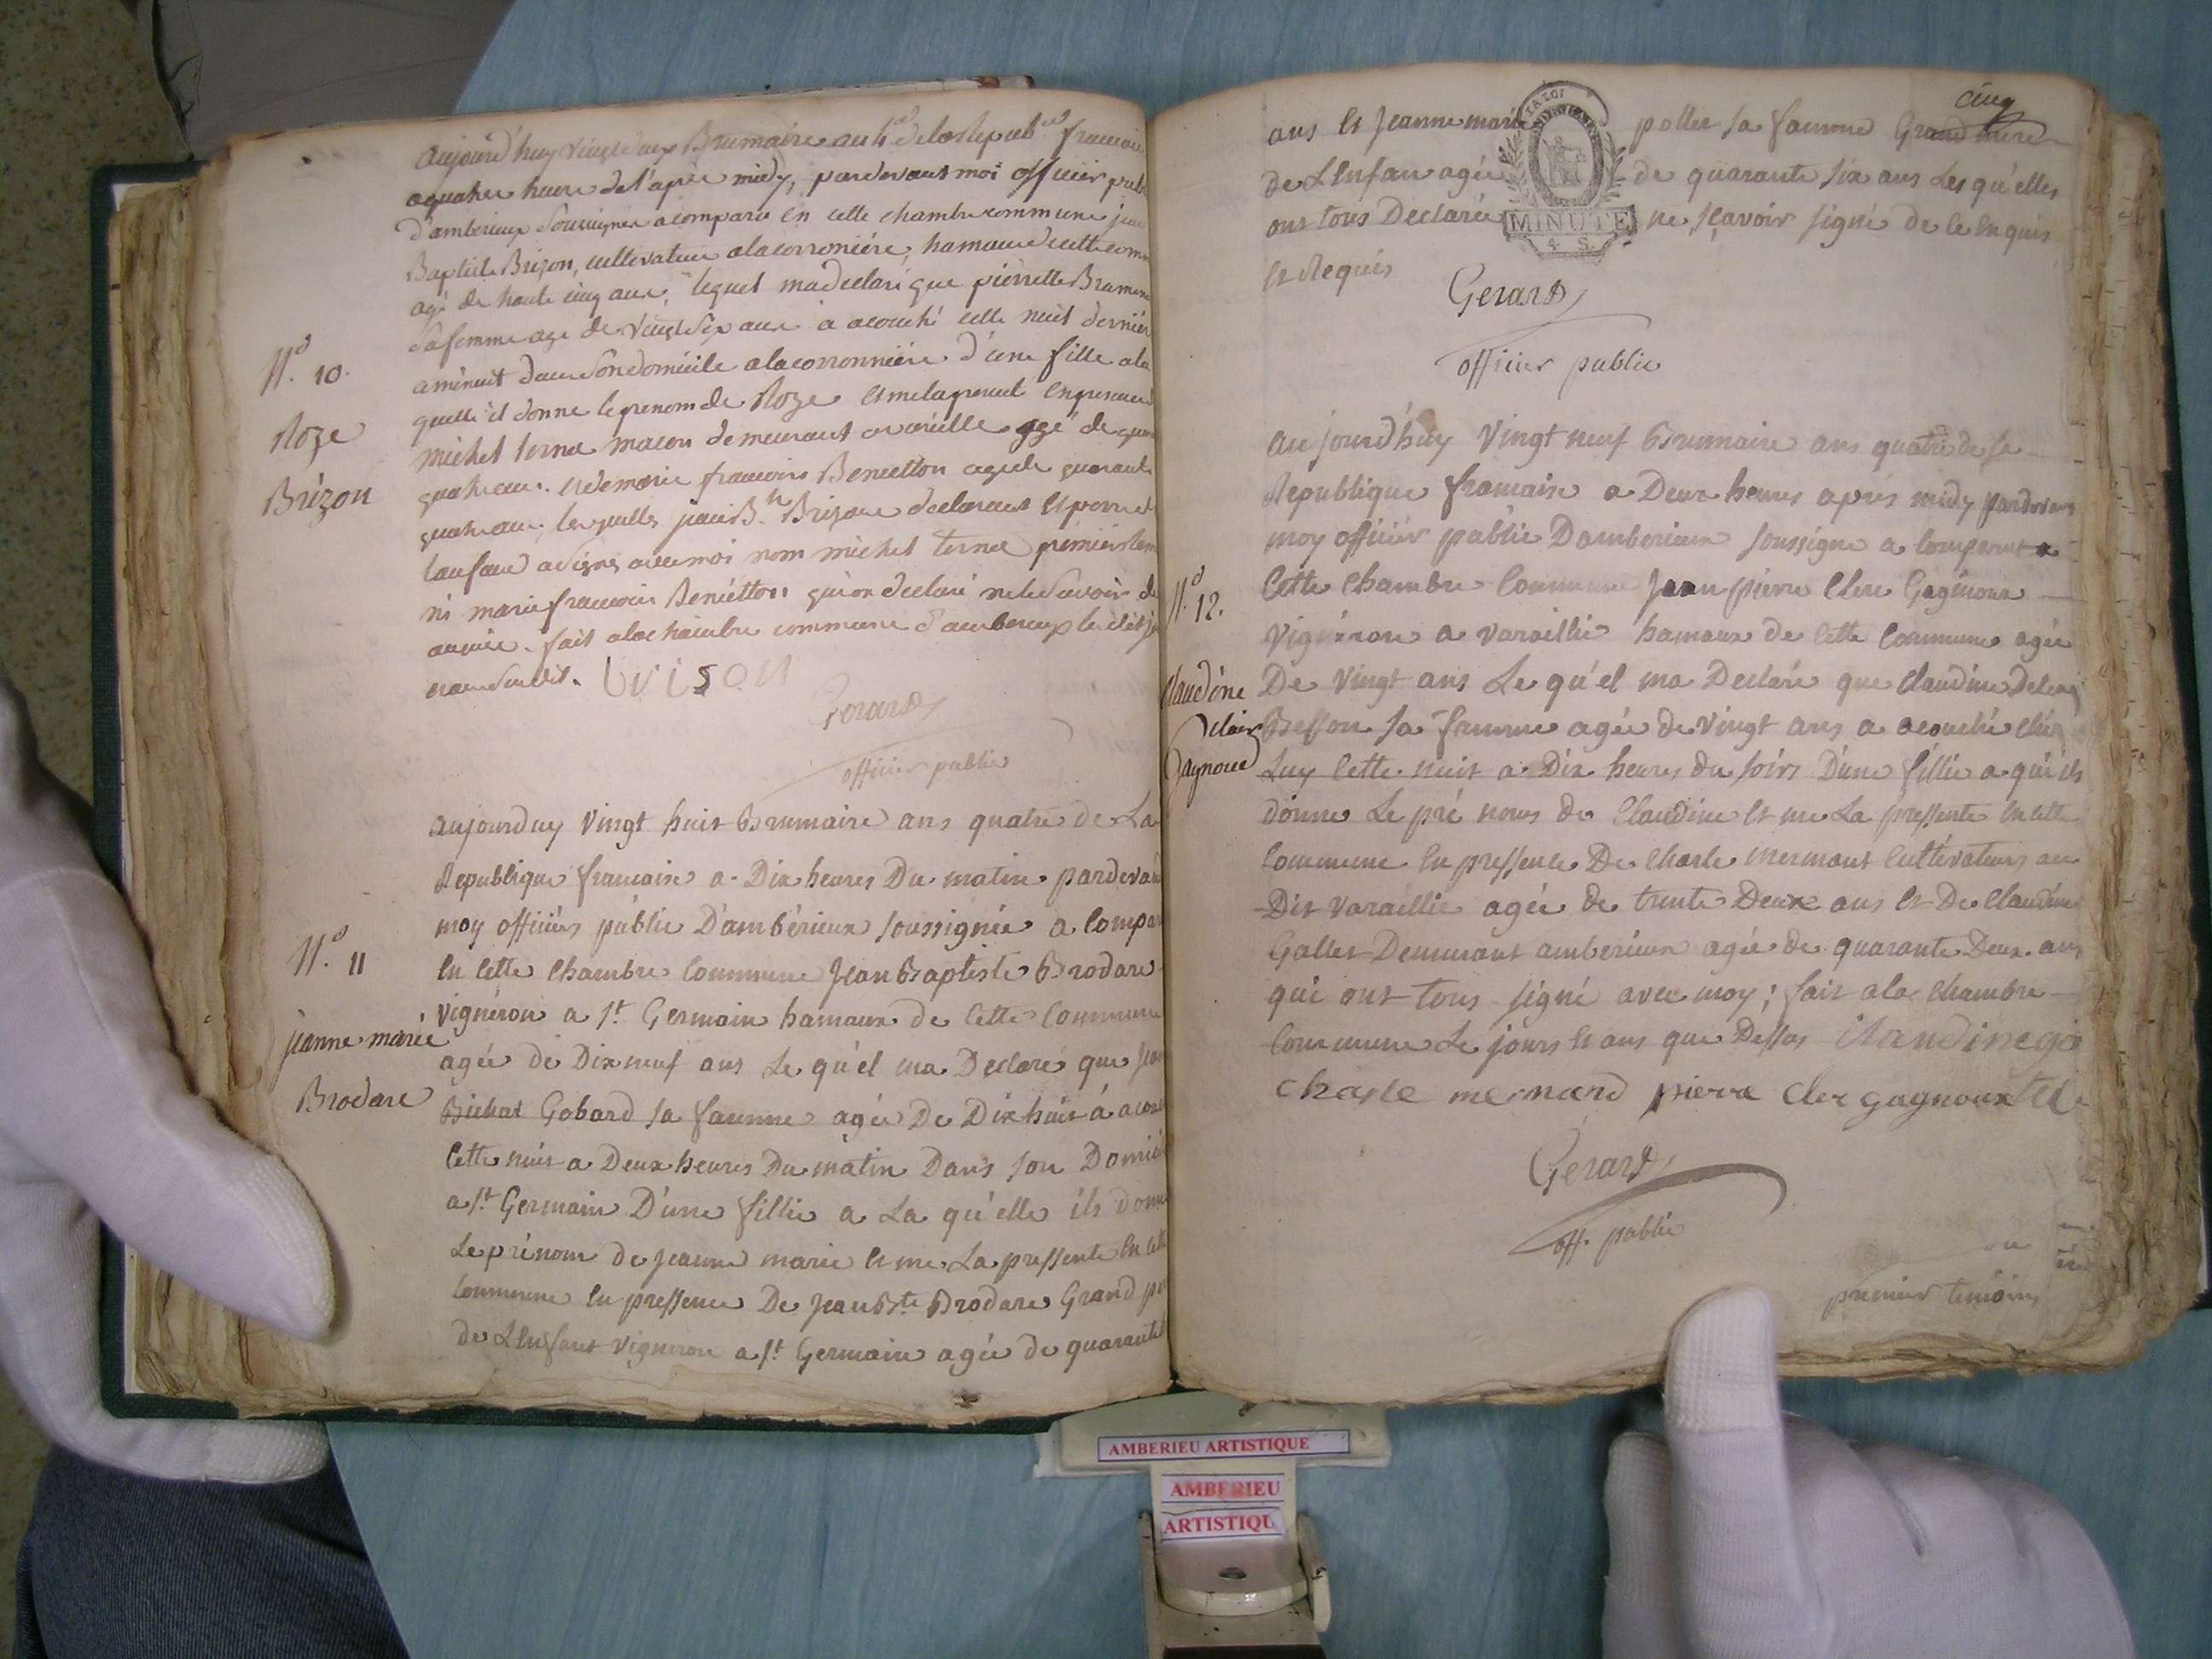 aujourd'huy vingt deux Brumaire an 4e de la Republ francoi
a quatre heure de l'aprèe midy, pardevant moi officier publ
d'amberieux Soussigner a comparu en cette chambre commune jean
Baptiste Brizon, cultivateur a la corroniére, hamau de cette com
agé de trante cinq ans, lequel ma declaré que pierrette
sa femme age de vingt six ans a acouché cette nuit derniér
a minuit dans son domicile a la corronniére d'une fille a la
quelle il donne le prenom de Roze et me la present en presence
michel terna macon demeurant a varéille agé de
quatre ans. et de marie francoise Beniétton agee de quarante
quatre ans, lesquelles jean B.te Brizon declarant et perre de
lanfand a signé avec moi nom michel terna premier tem
ni marie francoise Beniétton qui on declaré ne le savoir de
. fait a la chambre commune d'amberieux le dit jour
Brison
Gerard
officier public
N.o 10.
Roze
Brizon
aujourduy vingt huit Brumaire ans quatre de La
Republique francaise a Dix heures Du matin pardevant
moy officiérs public D'ambérieux soussignée a compar
en cette chambre commune Jean Baptiste Brodare
vignéron a St Germain hamaux de cette commune
agée de Dix neuf ans Le qu'el ma Declaré que
Bichat Gobard sa famme agée De Dix huit á acou
cette nuit a Deux heures Du matin Dans son Domici
a St Germain D'une fillie a La qu'elle ils donne
Le prénom de jeanne marie et me La pressente en cette
commune en pressence De jean Bte Brodare Grand pe
de L'Enfant vigneron a St Germain agée de quarante
N.o 11
jeanne marie
Brodare
cinq
ans et jeanne marie pollet sa famme Grand mere
de L'Enfan agée de quarante six ans Les qu'elles
ont tous Declarée ne sçavoir signé de ce enquis
et Requis
LA LOI
MINUTE
4 S.
Gerard
officier public
aujourd'huy vingt neuf Brumaire ans quatre de la
Republique francaise a Deux heures aprés midy pardevant
moy officiér public Damberieux soussigne a comparut a
cette chambre commune jean pierre Clerc Gagnoux
vignéron a varaillie hamaux de cette commune agée
De vingt ans Le qu'el ma Declaré que Claudine
Besson sa famme agée de vingt ans a acouchée chéz
Luy cette nuit a Dix heures du soirs D'une fillie a qui ils
donne Le pré nom de Claudine et me La pressente en cette
commune en pressence De charle mermant cultivateurs au
Dit varaillie agée de trente Deux ans et De Claudine
Gallet Demeurant amberieux agée de quarante Deux ans
qui ont tous signé avec moy; fait a la chambre
commune Le jours et ans que Dessus Claudine ga
charle mernard pierre cler gagnoux
Gerard
off. public
N.o 12.
Claudine
clair
Gagnoux
premier temoins
AMBERIEU ARTISTIQUE
AMBERIEU
ARTISTIQU